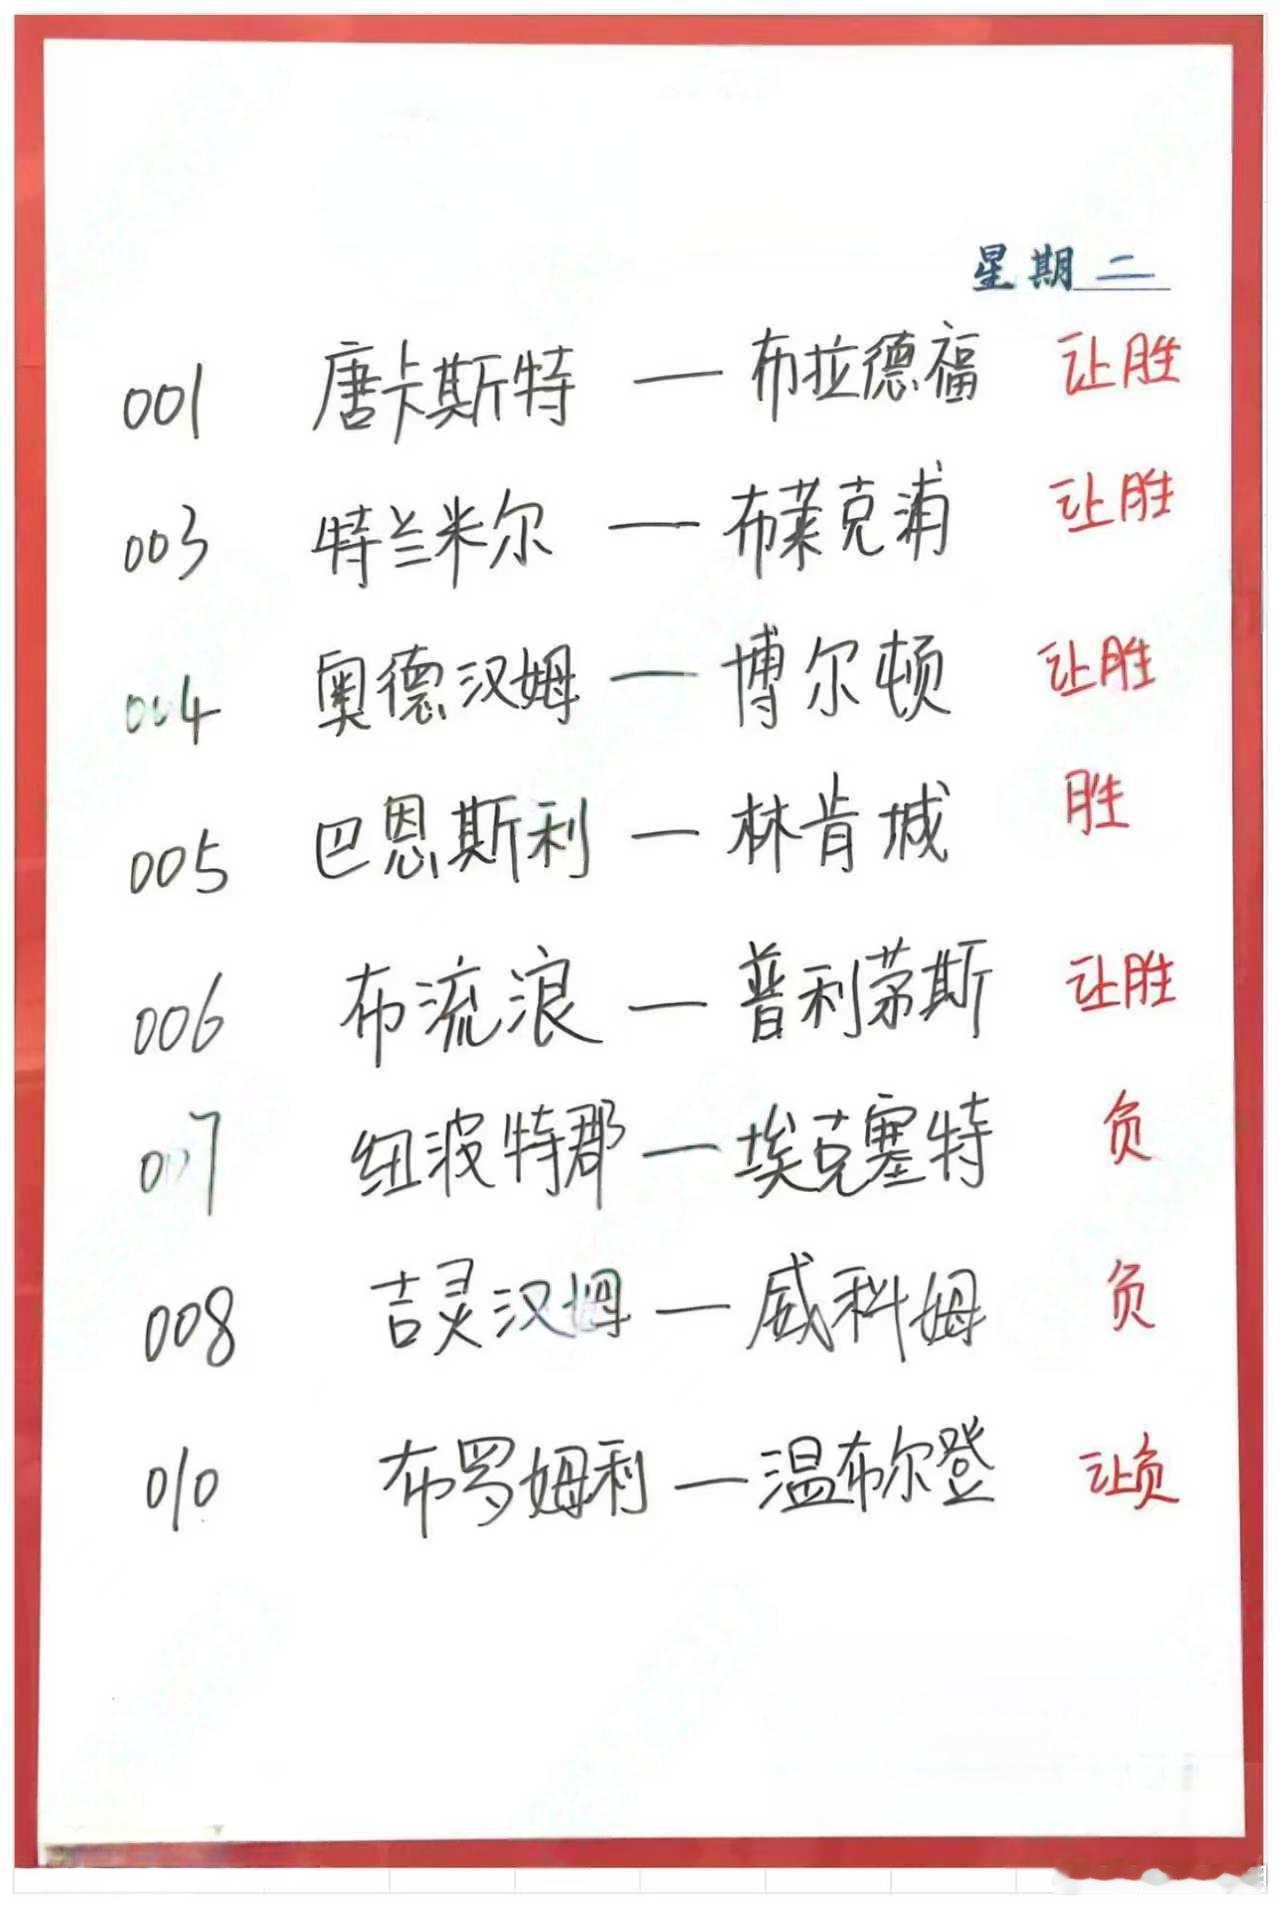 星期二
001 唐卡斯特 — 布拉德福 让胜
003 特兰米尔 — 布莱克浦 让胜
004 奥德汉姆 — 博尔顿 让胜
005 巴恩斯利 — 林肯城 胜
006 布流浪 — 普利茅斯 让胜
007 纽波特郡 — 埃克塞特 负
008 吉灵汉姆 — 威科姆 负
010 布罗姆利 — 温布尔登 让负